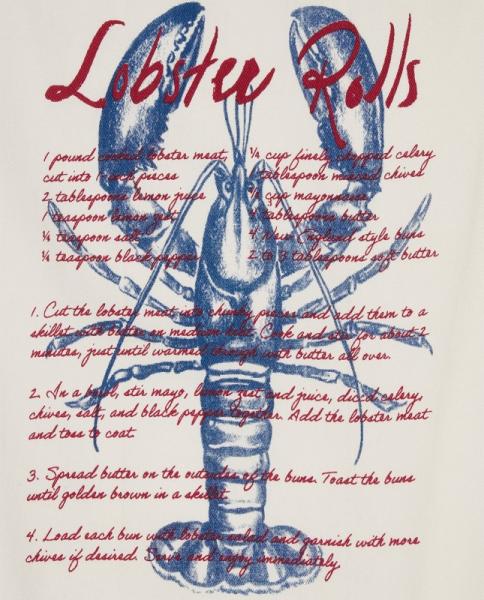 Lobster Rolls
1 pound cooked lobster meat,
cut into 1-inch pieces
2 tablespoons lemon juice
1 teaspoon lemon zest
1/4 teaspoon salt
1/4 teaspoon black pepper
1/4 cup finely chopped celery
1 tablespoon minced chives
cup mayonnaise
tablespoons butter
4 New England style buns
2 to 3 tablespoons soft butter
1. Cut the lobster meat into chunky pieces and add them to a
skillet with butter on medium heat. Cook and stir for about 2
minutes, just until warmed through with butter all over.
2. In a bowl, stir mayo, lemon zest and juice, diced celery,
chives, salt, and black pepper together. Add the lobster meat
and toss to coat
3. Spread butter on the outsides of the buns. Toast the buns
until golden brown in a skillet.
4. Load each bun with lobster salad and garnish with more
chives if desired. Serve and enjoy immediately